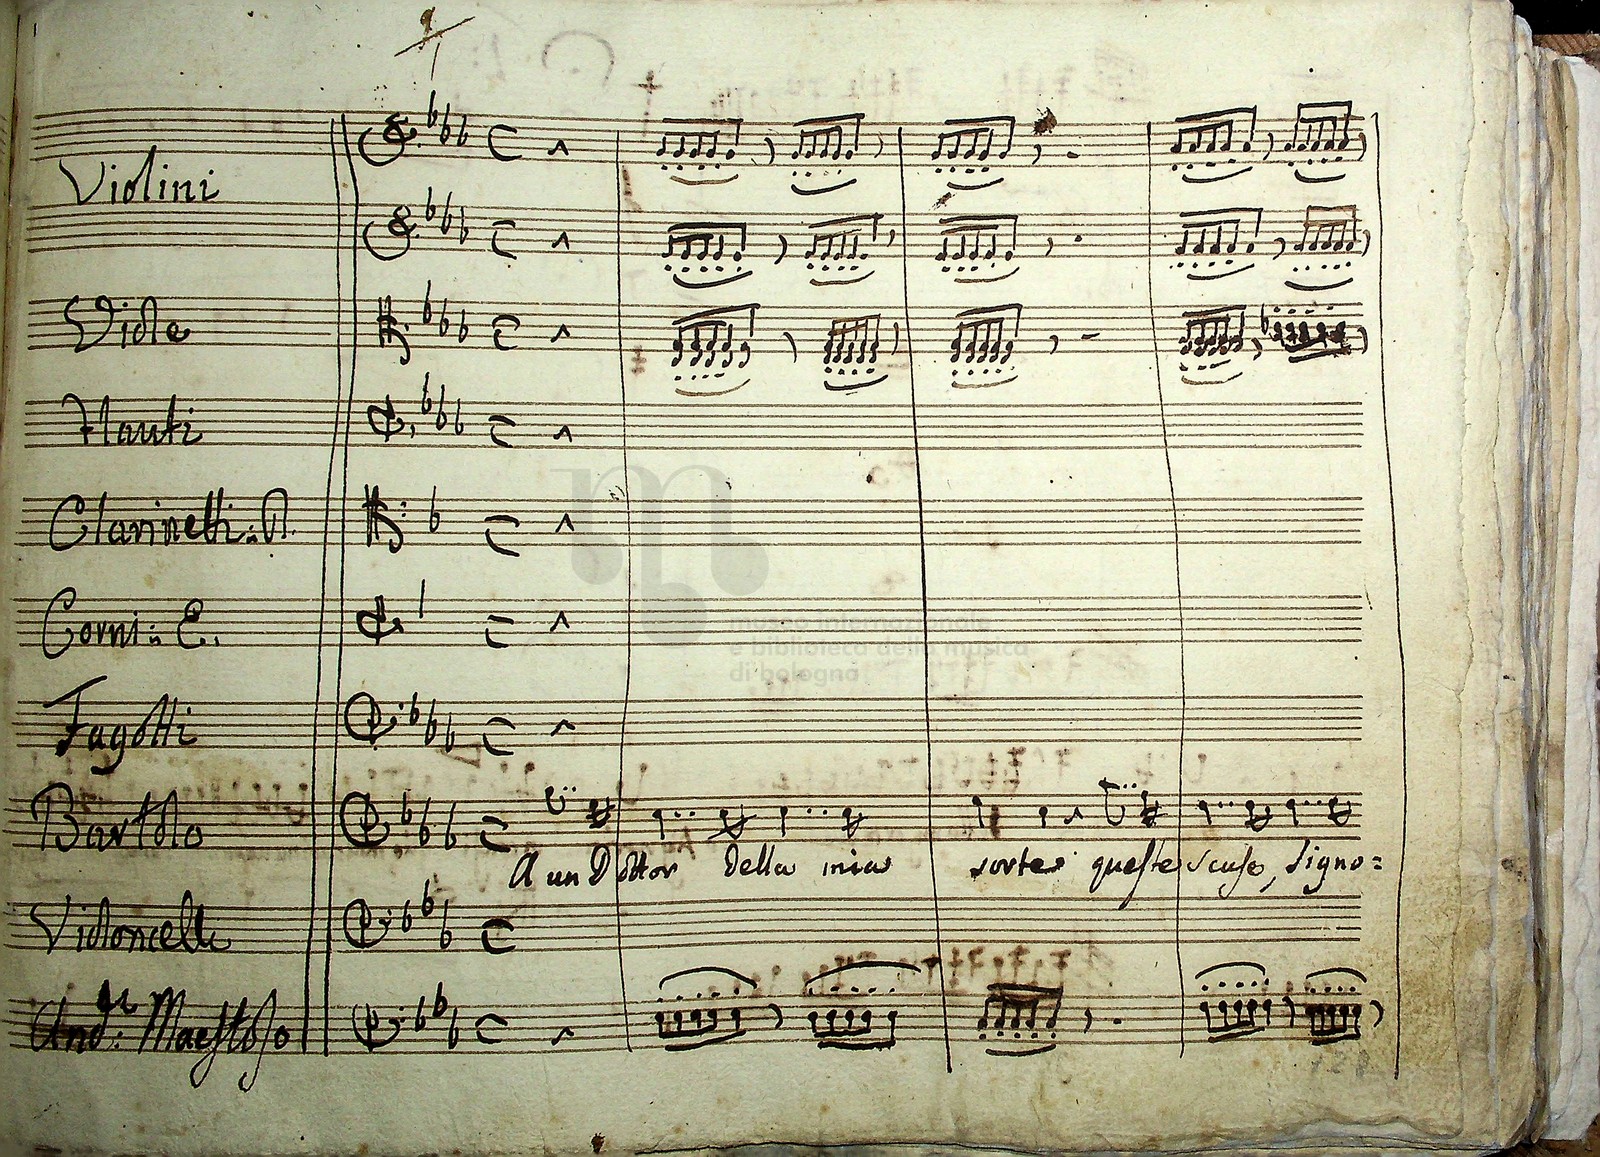 Violini
Viole
Flauti
Clarinetti: in
museo internazionale
e biblioteca della musica
di bologna
Corni: in E.
Fagotti
Bartolo
A un Dottor della mia sorte queste scuse, signo=
Violoncelli
And:te Maestoso